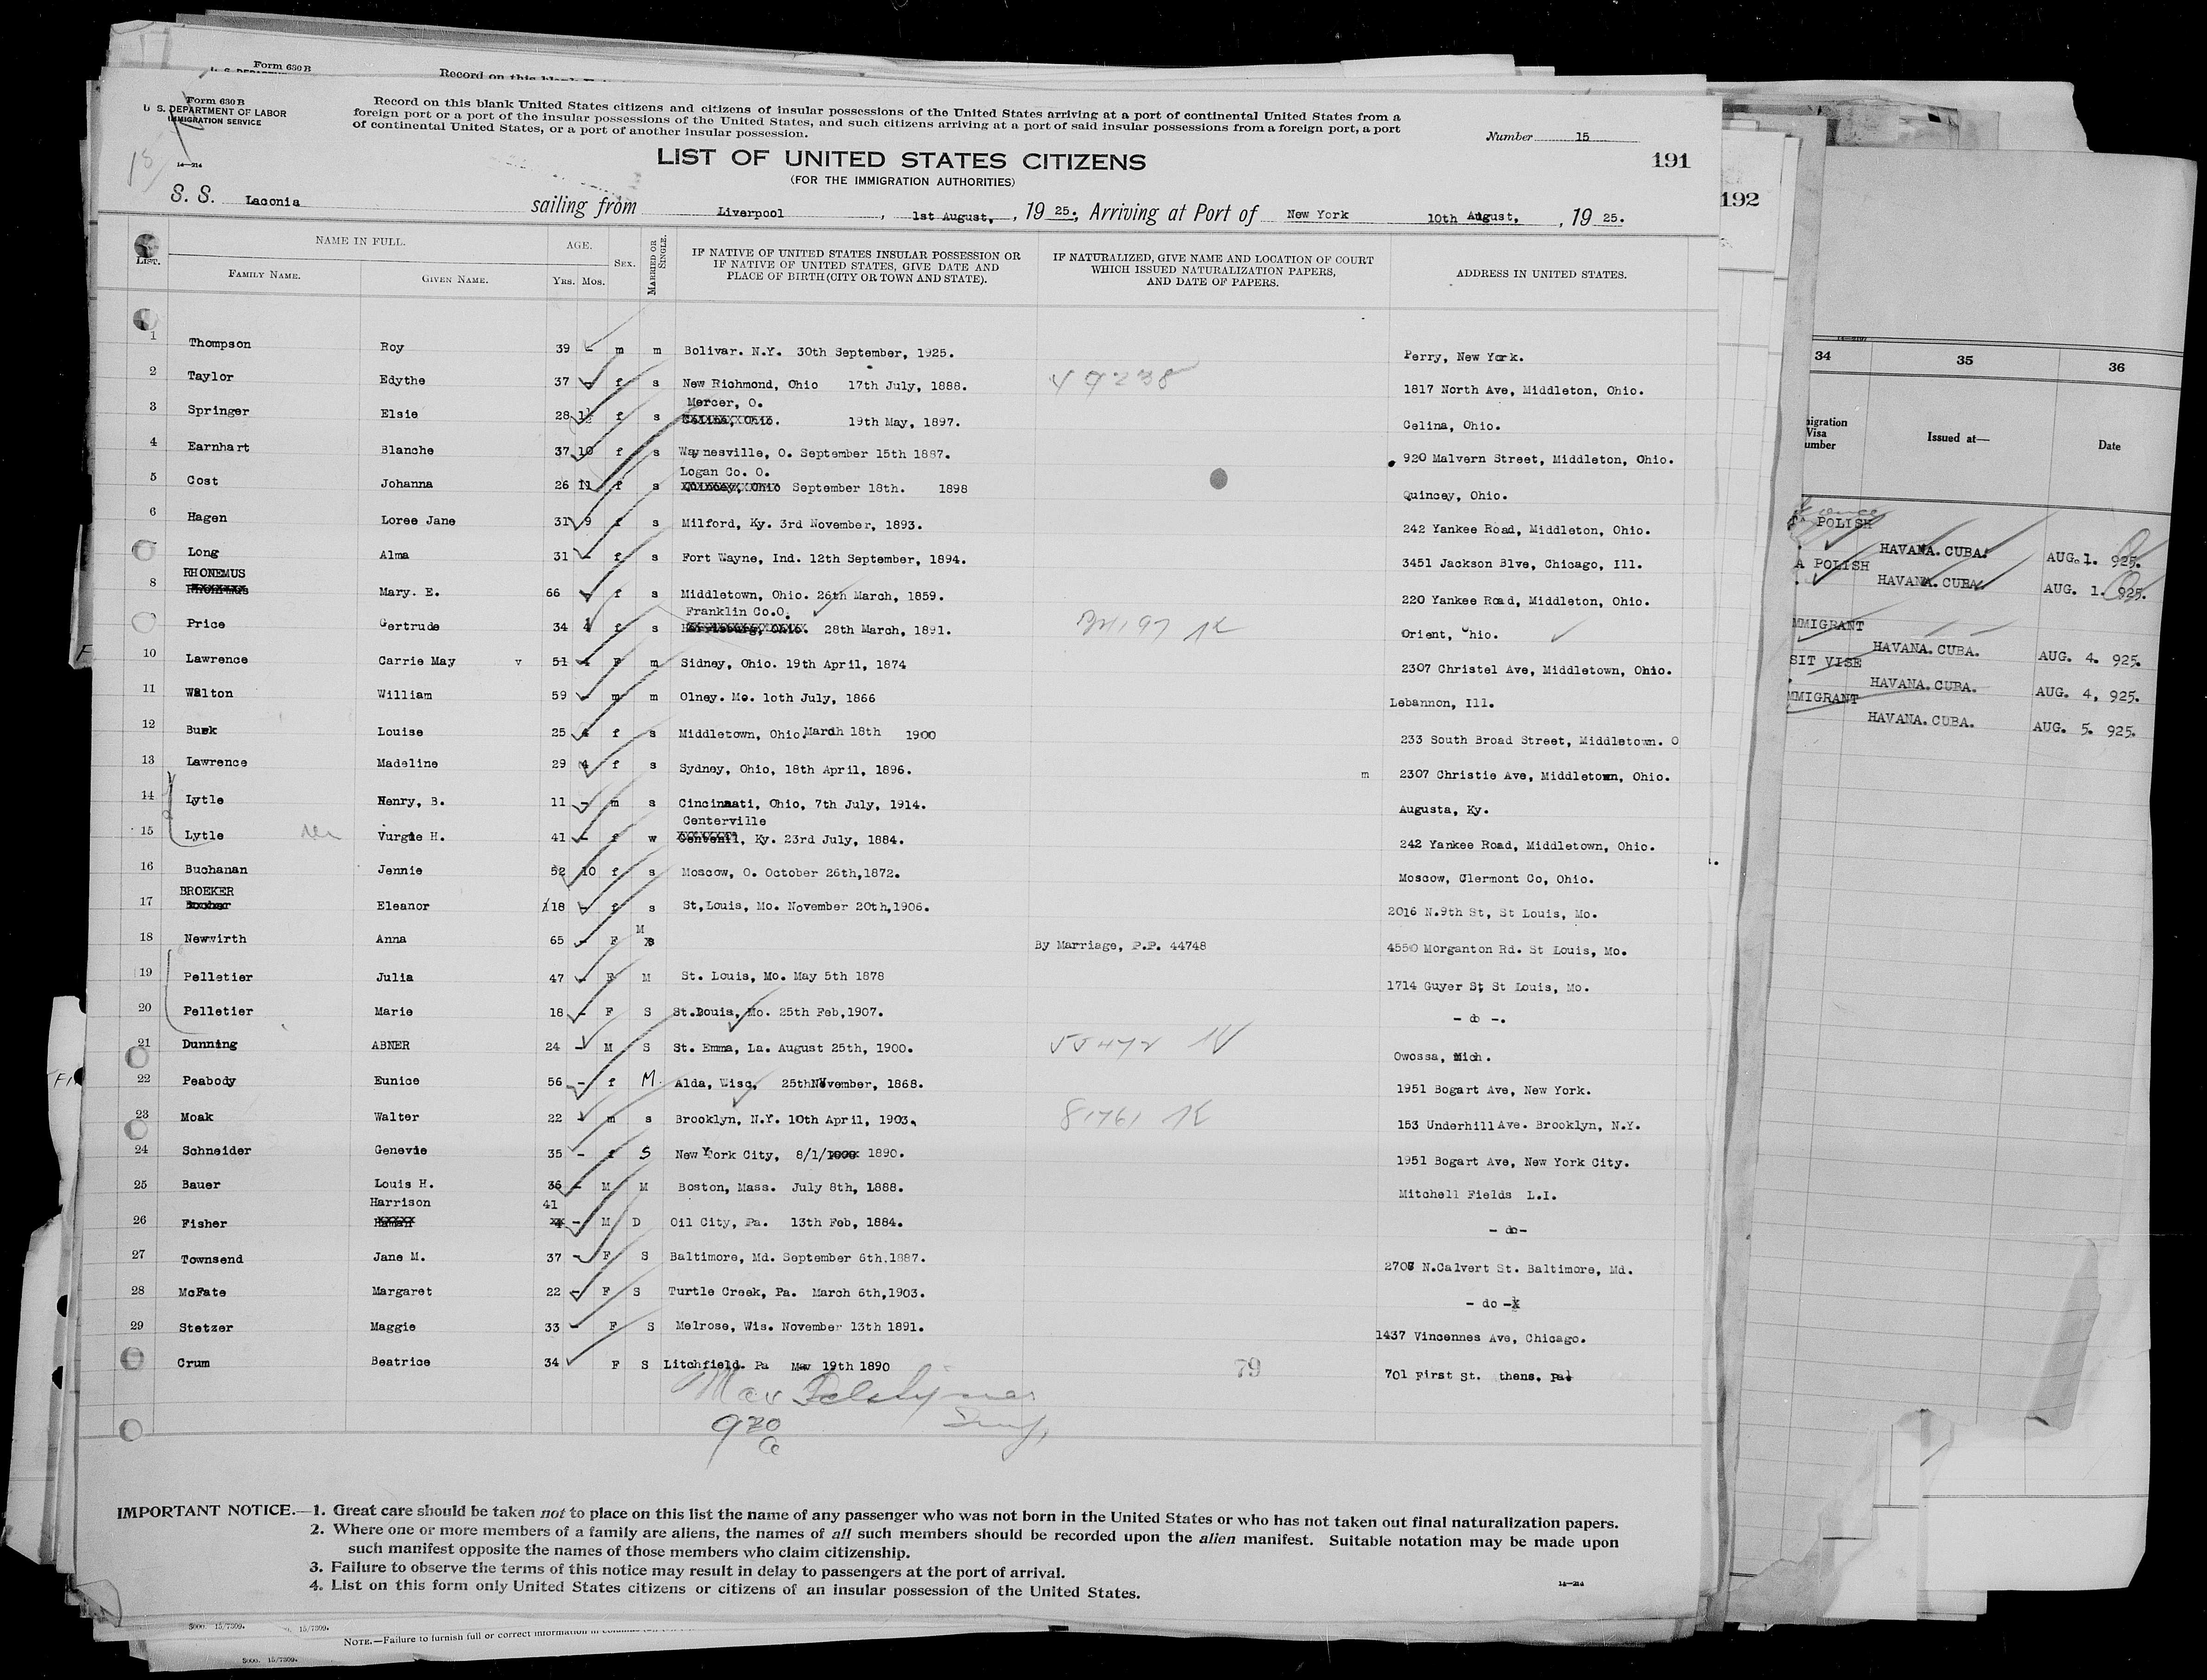 Form 630 B
Record on this blank
Form 630 B
U. S. DEPARTMENT OF LABOR
IMMIGRATION SERVICE
14—214
Record on this blank United States citizens and citizens of insular possessions of the United States arriving at a port of continental United States from a
foreign port or a port of the insular possessions of the United States, and such citizens arriving at a port of said insular possessions from a foreign port, a port
of continental United States, or a port of another insular possession.
Number 15
LIST OF UNITED STATES CITIZENS
191
(FOR THE IMMIGRATION AUTHORITIES)
192
S. S. Laconia sailing from Liverpool, 1st August, , 19 25., Arriving at Port of New York 10th August, , 19 25.
LIST. NAME IN FULL. FAMILY NAME. GIVEN NAME. AGE. YRS. MOS. SEX. MARRIED OR SINGLE. IF NATIVE OF UNITED STATES INSULAR POSSESSION OR IF NATIVE OF UNITED STATES, GIVE DATE AND PLACE OF BIRTH (CITY OR TOWN AND STATE). IF NATURALIZED, GIVE NAME AND LOCATION OF COURT WHICH ISSUED NATURALIZATION PAPERS, AND DATE OF PAPERS. ADDRESS IN UNITED STATES.
1 Thompson Roy 39 - m m Bolivar. N.Y. 30th September, 1925. Perry, New York.
2 Taylor Edythe 37 - f s New Richmond, Ohio 17th July, 1888. 49238 1817 North Ave, Middleton, Ohio.
Mercer, O.
3 Springer Elsie 28 f s Celina, Ohio. 19th May, 1897. Celina, Ohio.
4 Earnhart Blanche 37 10 f s Waynesville, O. September 15th 1887. 920 Malvern Street, Middleton, Ohio.
Logan Co. O.
5 Cost Johanna 26 11 f s Quincey, Ohio September 18th. 1898 Quincey, Ohio.
6 Hagen Loree Jane 31 9 f s Milford, Ky. 3rd November, 1893. 242 Yankee Road, Middleton, Ohio.
Long Alma 31 - f s Fort Wayne, Ind. 12th September, 1894. 3451 Jackson Blve, Chicago, Ill.
RHONEMUS
8 Mary. E. 66 - f s Middletown, Ohio. 26th March, 1859. 220 Yankee Road, Middleton, Ohio.
Franklin Co.O.
Price Gertrude 34 4 f s Harrisburg, Ohio. 28th March, 1891. Orient, Ohio.
10 Lawrence Carrie May v 51 4 F m Sidney, Ohio. 19th April, 1874 2307 Christel Ave, Middletown, Ohio.
11 Walton William 59 - m m Olney. Mo. 1oth July, 1866 Lebannon, Ill.
12 Busk Louise 25 4 f s Middletown, Ohio. March 18th 1900 233 South Broad Street, Middletown. O
13 Lawrence Madeline 29 4 f s Sydney, Ohio, 18th April, 1896. m 2307 Christie Ave, Middletown, Ohio.
14 Lytle Henry, B. 11 - m s Cincinnati, Ohio, 7th July, 1914. Augusta, Ky.
Centerville
15 Lytle Vurgie H. 41 - f w Centenil, Ky. 23rd July, 1884. 242 Yankee Road, Middletown, Ohio.
16 Buchanan Jennie 52 10 f s Moscow, O. October 26th,1872. Moscow, Clermont Co, Ohio.
BROEKER
17 Eleanor 18 - f s St,Louis, Mo. November 20th,1906. 2016 N.9th St, St Louis, Mo.
18 Newvirth Anna 65 - F M By Marriage, P.P. 44748 4550 Morganton Rd. St Louis, Mo.
19 Pelletier Julia 47 - F M St. Louis, Mo. May 5th 1878 1714 Guyer St St Louis, Mo.
20 Pelletier Marie 18 - F S St.Louis, Mo. 25th Feb,1907. - do -.
21 Dunning ABNER 24 - M S St. Emma, La. August 25th, 1900. 55472 Owossa, Mich.
22 Peabody Eunice 56 - f M. Alda, Wisc, 25thNovember, 1868. 1951 Bogart Ave, New York.
23 Moak Walter 22 - m s Brooklyn, N.Y. 10th April, 1903. 81761 153 Underhill Ave. Brooklyn, N.Y.
24 Schneider Genevie 35 - f S New York City, 8/1/ 1890. 1951 Bogart Ave, New York City.
25 Bauer Louis H. 36 - M M Boston, Mass. July 8th, 1888. Mitchell Fields L.I.
Harrison 41
26 Fisher - M D Oil City, Pa. 13th Feb, 1884. - do-
27 Townsend Jane M. 37 - F S Baltimore, Md. September 6th,1887. 2706 N.Calvert St. Baltimore, Md.
28 McFate Margaret 22 - F S Turtle Creek, Pa. March 6th,1903. - do -
29 Stetzer Maggie 33 - F S Melrose, Wis. November 13th 1891. 1437 Vincennes Ave, Chicago.
Crum Beatrice 34 F S Litchfield. Pa May 19th 1890 79 701 First St. thens. Pa.
IMPORTANT NOTICE.—1. Great care should be taken not to place on this list the name of any passenger who was not born in the United States or who has not taken out final naturalization papers.
2. Where one or more members of a family are aliens, the names of all such members should be recorded upon the alien manifest. Suitable notation may be made upon
such manifest opposite the names of those members who claim citizenship.
3. Failure to observe the terms of this notice may result in delay to passengers at the port of arrival.
4. List on this form only United States citizens or citizens of an insular possession of the United States.
14—214
5000. 15/7309. 15/7309.
NOTE.—Failure to furnish full or correct information in
5000. 15/7309.
34 35 36
migration Visa umber Issued at— Date
POLISH
HAVANA. CUBA. AUG. 1. 925.
A POLISH
HAVANA. CUBA AUG. 1. 925.
MMIGRANT
HAVANA. CUBA. AUG. 4. 925.
SIT VISE
HAVANA. CUBA. AUG. 4, 925.
MMIGRANT
HAVANA. CUBA. AUG. 5. 925.